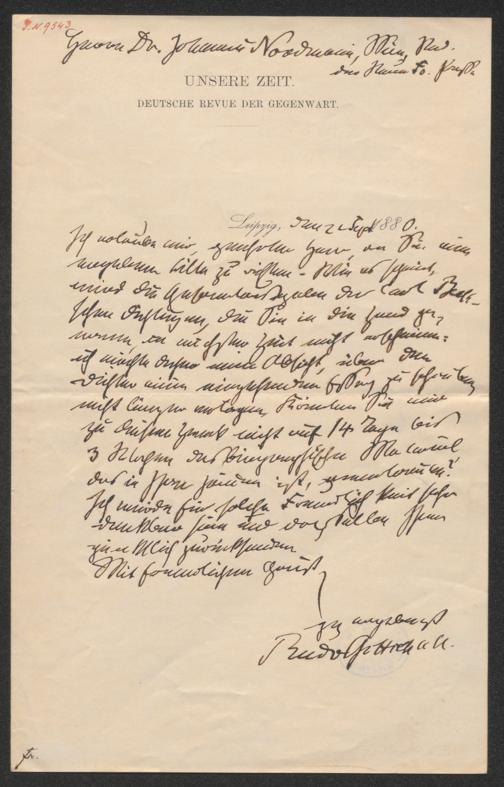 I.N. 9543
Herrn Dr. Johannes Nordmann, Wien, Red.
der Neuen Fr. Presse
UNSERE ZEIT.
DEUTSCHE REVUE DER GEGENWART.
Leipzig, den 21 Sept 1880.
Ich erlaube mir, geehrter Herr, an Sie eine
ergebene Bitte zu richten. Wie es scheint,
wird die Gesammtausgabe der Carl Beck-
schen Dichtungen, die Sie in die Hand ge-
nommen, in nächster Zeit nicht erscheinen:
ich möchte daher meine Absicht, über den
Dichter einen eingehenden Essay zu schreiben
nicht länger vertagen. Könnten Sie mir
zu diesem Zweck nicht auf 14 Tage bis
3 Wochen das biographische Material
das in Ihren Händen ist, anvertrauen?
Ich würde für solche Freundlichkeit sehr
dankbar sein und das Ihnen
pünktlich zurücksenden.
Mit freundlichem Gruß
ergebenst
Rudolf Gottschall.
Fr.